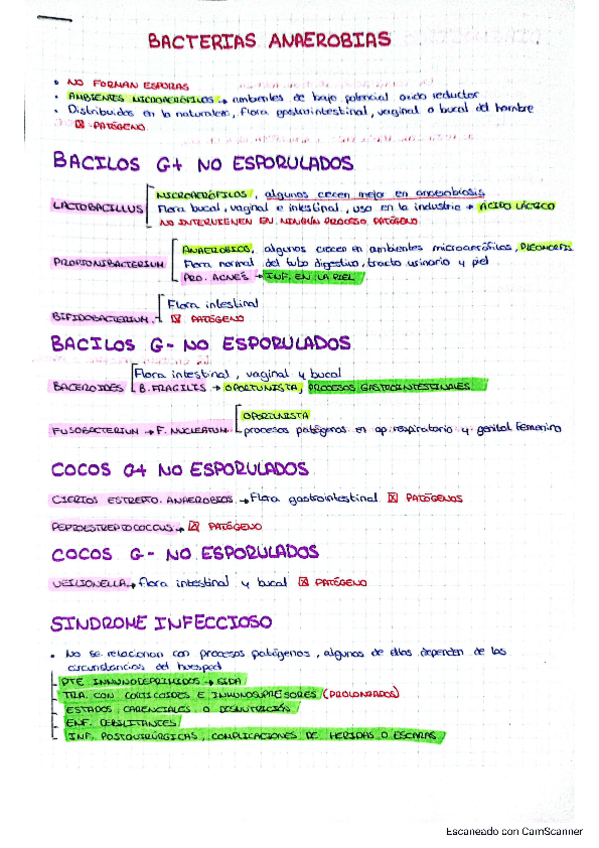 BACTERIAS ANAEROBIAS
• NO FORMAN ESPORAS
• AMBIENTES MICROAERÓFILOS → ambientes de bajo potencial oxido reductor
• Distribuidas en la naturaleza, flora gastrointestinal, vaginal o bucal del hombre
☒ PATÓGENO
BACILOS G+ NO ESPORULADOS
MICROAERÓFILOS, algunos crecen mejor en anaerobiosis
LACTOBACILLUS
Flora bucal, vaginal e intestinal, uso en la industria → ÁCIDO LÁCTICO
NO INTERVIENEN EN NINGÚN PROCESO PATÓGENO
ANAEROBICO, algunos crecen en ambientes microaerófilos,
PROPIONIBACTERIUM
Flora normal del tubo digestivo, tracto urinario y piel
PRO. ACNES → INF. EN LA PIEL
Flora intestinal
BIFIDOBACTERIUM
☒ PATÓGENO
BACILOS G- NO ESPORULADOS
Flora intestinal, vaginal y bucal
BACEROIDES
B. FRAGILIS → OPORTUNISTA, PROCESOS GASTROINTESTINALES
OPORTUNISTA
FUSOBACTERIUM → F. NUCLEATUM
procesos patógenos en ap. respiratorio y genital femenino
COCOS G+ NO ESPORULADOS
CIERTOS ESTREPTO. ANAEROBIOS → Flora gastrointestinal ☒ PATÓGENOS
PEPTOESTREPTOCOCCUS → ☒ PATÓGENO
COCOS G- NO ESPORULADOS
VEILIONELLA → flora intestinal y bucal ☒ PATÓGENO
SINDROME INFECCIOSO
• No se relacionan con procesos patógenos, algunos de ellos dependen de las
circunstancias del huesped
PTE INMUNODEPRIMIDOS → SIDA
TRA. CON CORTICOIDES E INMUNOSUPRESORES (PROLONGADOS)
ESTADOS CARENCIALES O DESNUTRICIÓN
ENF. DEBILITANTES
INF. POSTQUIRÚRGICAS, COMPLICACIONES DE HERIDAS O ESCARAS
Escaneado con CamScanner